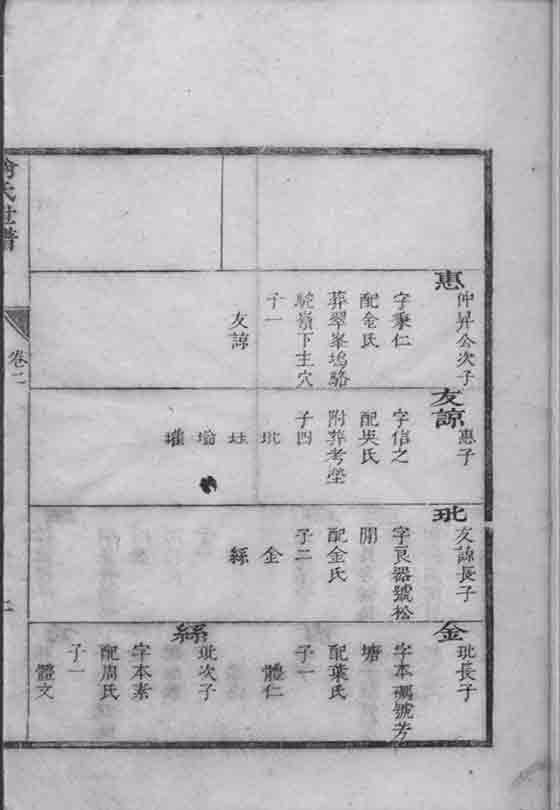 惠
仲昇公次子
字秉仁
配金氏
葬翠峯塢駱
駝嶺下主穴
子一
友諒
友諒
惠子
字信之
配吳氏
附葬考塋
子四
玭
玨
瑜
瓘
玭
友諒長子
字良器號松
開
配金氏
子二
金
絲
金
玭長子
字本礪號芳
塘
配葉氏
子一
體仁
絲
玭次子
字本素
配周氏
子一
體文
氏世譜
卷二